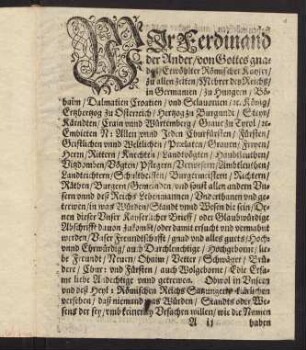 WIr Ferdinand
der Ander / von Gottes gna-
den / Erwöhlter Römischer Kayser /
zu allen zeiten / Mehrer deß Reichs /
in Germanien / zu Hungern / Bö-
haim / Dalmatien Croatien / vnd Sclauonien / ꝛc. König /
Ertzhertzog zu Osterreich / Hertzog zu Burgundt / Steyr /
Kärndten / Crain vnnd Würtemberg / Graue zu Tyrol / ꝛc.
Embieten N: Allen vnnd Jeden Churfürsten / Fürsten /
Geistlichen vnnd Weltlichen / Prælaten / Grauen / Freyen /
Herrn / Rittern / Knechten / Landtvögten / Hauptleuthen /
Vitzdomben / Vögten / Pflegern / Verwesern / Ambtleuthen /
Landtrichtern / Schultheissen / Burgermeistern / Richtern /
Räthen / Burgern / Gemeinden / vnd sonst allen andern Vn-
sern vnnd deß Reichs Vnderthanen vnd ge-
trewen / in was Würden / Standt vnd Wesen die sein / De-
nen dieser Vnser Kayserlicher Brieff / oder Glaubwürdige
Abschrifft dauon zukombt / oder damit ersucht vnd vermahnt
werden / Vnser Freundtschafft / gnad vnd alles guets / Hoch-
vnnd Ehrwürdig / auch Durchleuchtige / Hochgeborne / lie-
be Freundt / Neuen / Ohaim / Vetter / Schwäger / Brü-
dere / Chur: vnd Fürsten / auch Wolgeborne / Edle Ersa-
me liebe Andechtige vnnd getrewen. Obwol in Vnsern
vnd deß Heyl: Römischen Reichs Satzungen fürsehen
versehen / daß niemand was Würden / Standts oder We-
sens der sey / vmb keinerley Vrsachen willen / wie die Namen
A ij haben